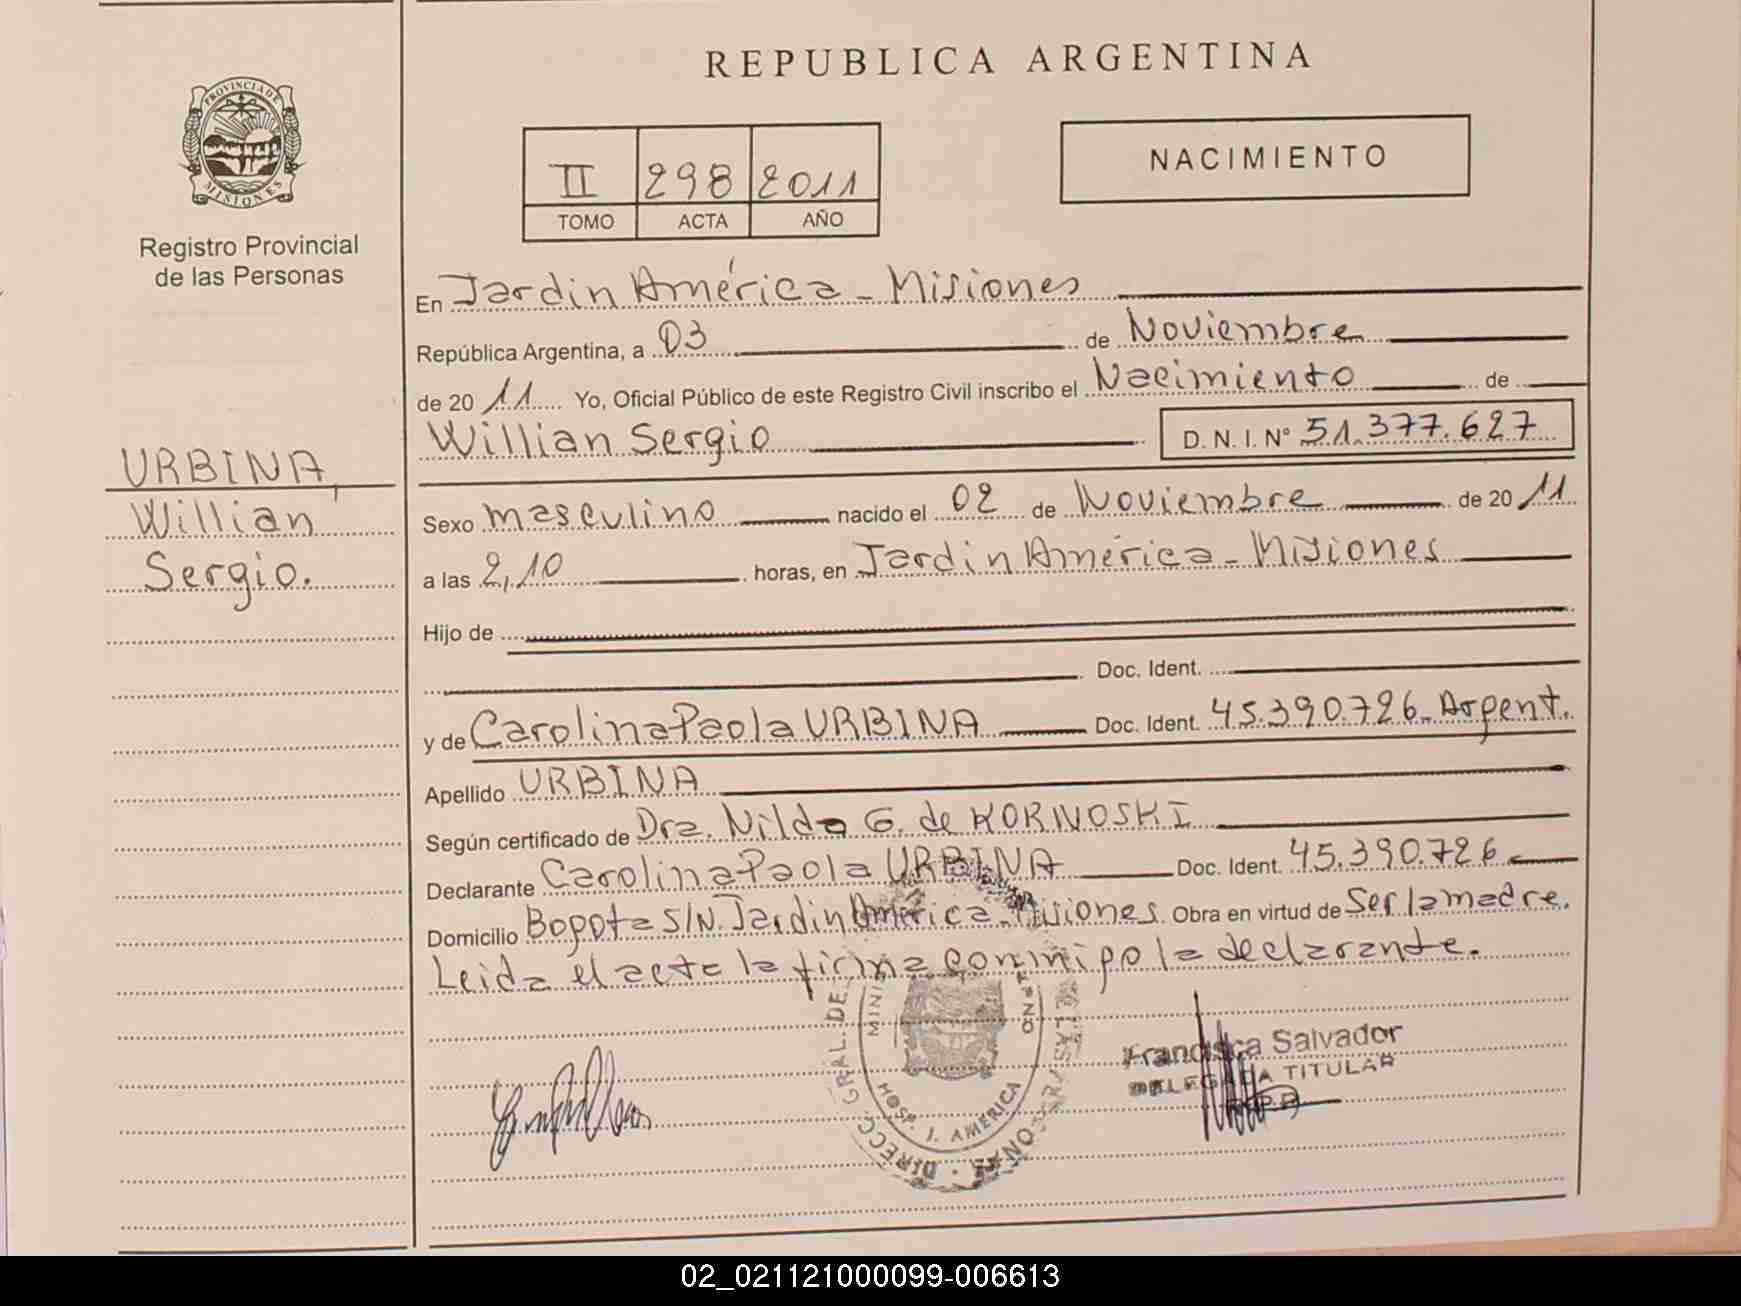 REPUBLICA ARGENTINA
PROVINCIA DE MISIONES
Registro Provincial
de las Personas
II 298 2011
TOMO ACTA AÑO
NACIMIENTO
URBINA,
Willian
Sergio.
En Jardin América - Misiones
República Argentina, a 03 de Noviembre
de 20 11 Yo, Oficial Público de este Registro Civil inscribo el Nacimiento de
Willian Sergio D.N.I. Nº 51.377.627
Sexo masculino nacido el 02 de Noviembre de 20 11
a las 2,10 horas, en Jardin América - Misiones
Hijo de
Doc. Ident.
y de Carolina Paola URBINA Doc. Ident. 45.390.726. Argent.
Apellido URBINA
Según certificado de Dra. Nilda G. de KORNOSKI
Declarante Carolina Paola URBINA Doc. Ident. 45.390.726
Domicilio Bogota S/N. Jardin América - Misiones. Obra en virtud de Ser la madre.
Leida el acta la firma conmigo la declarante.
DIRECC. GRAL. DE
HOSP. J. AMERICA
Francisca Salvador
DELEGADA TITULAR
02_021121000099-006613